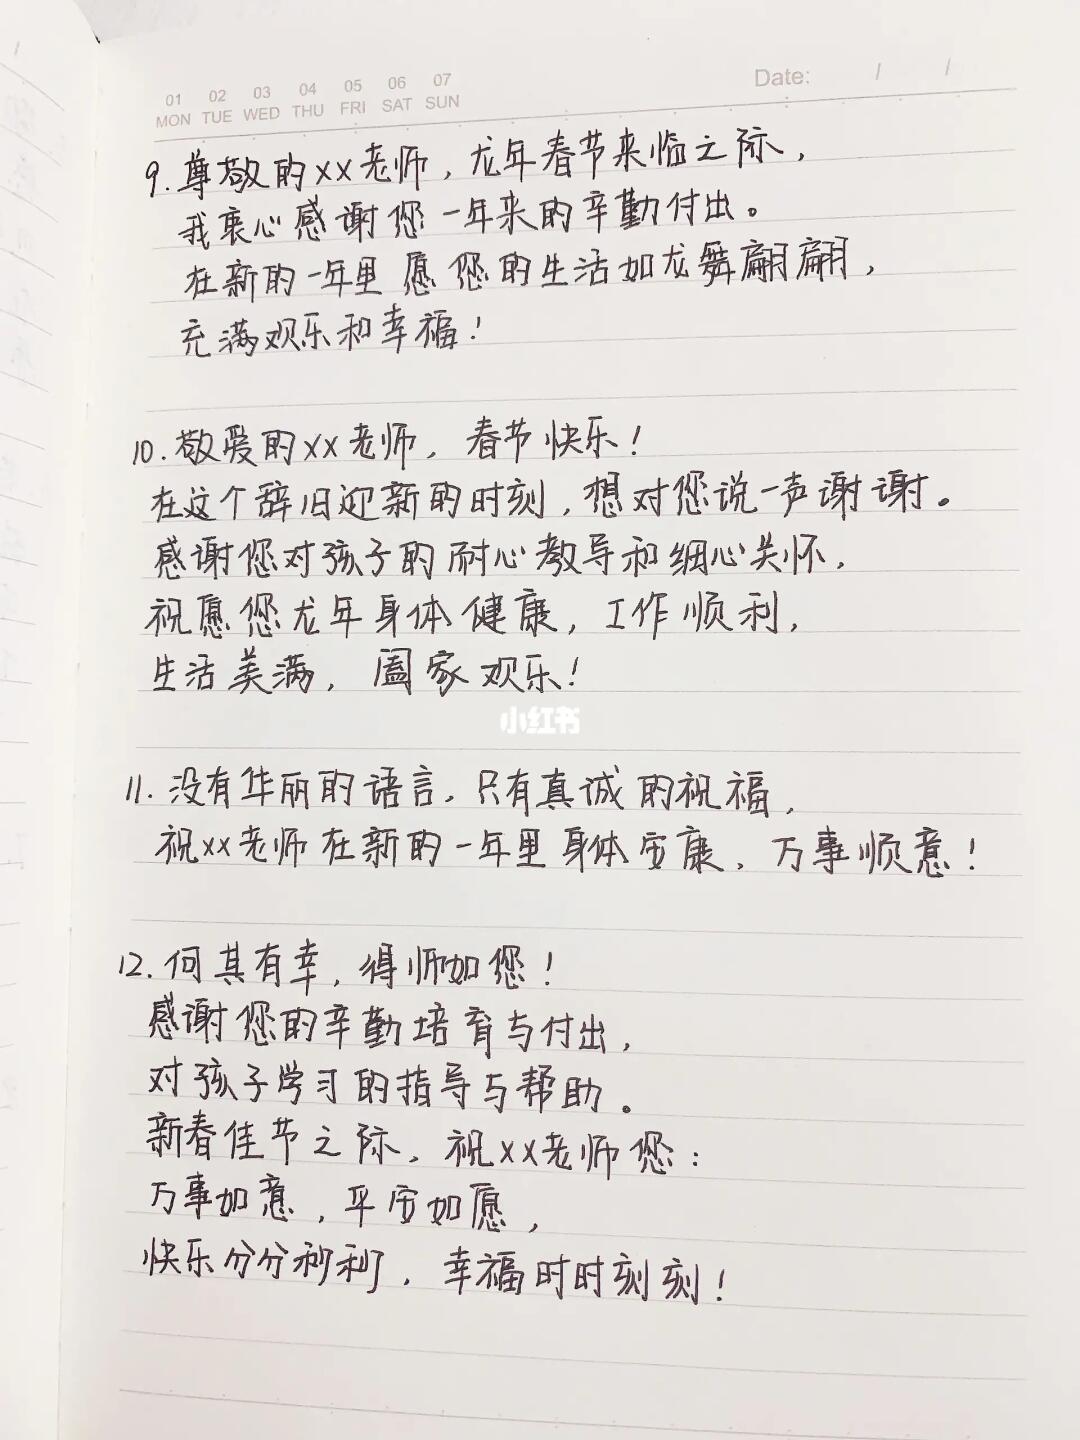 01 02 03 04 05 06 07
MON TUE WED THU FRI SAT SUN
Date: / /
9.尊敬的xx老师，龙年春节来临之际，
我衷心感谢您一年来的辛勤付出。
在新的一年里愿您的生活如龙舞翩翩，
充满欢乐和幸福！
10.敬爱的xx老师，春节快乐！
在这个辞旧迎新的时刻，想对您说一声谢谢。
感谢您对孩子的耐心教导和细心关怀，
祝愿您龙年身体健康，工作顺利，
生活美满，阖家欢乐！
小红书
11.没有华丽的语言，只有真诚的祝福，
祝xx老师在新的一年里身体安康，万事顺意！
12.何其有幸，得师如您！
感谢您的辛勤培育与付出，
对孩子学习的指导与帮助。
新春佳节之际，祝xx老师您：
万事如意，平安如愿，
快乐分分秒秒，幸福时时刻刻！